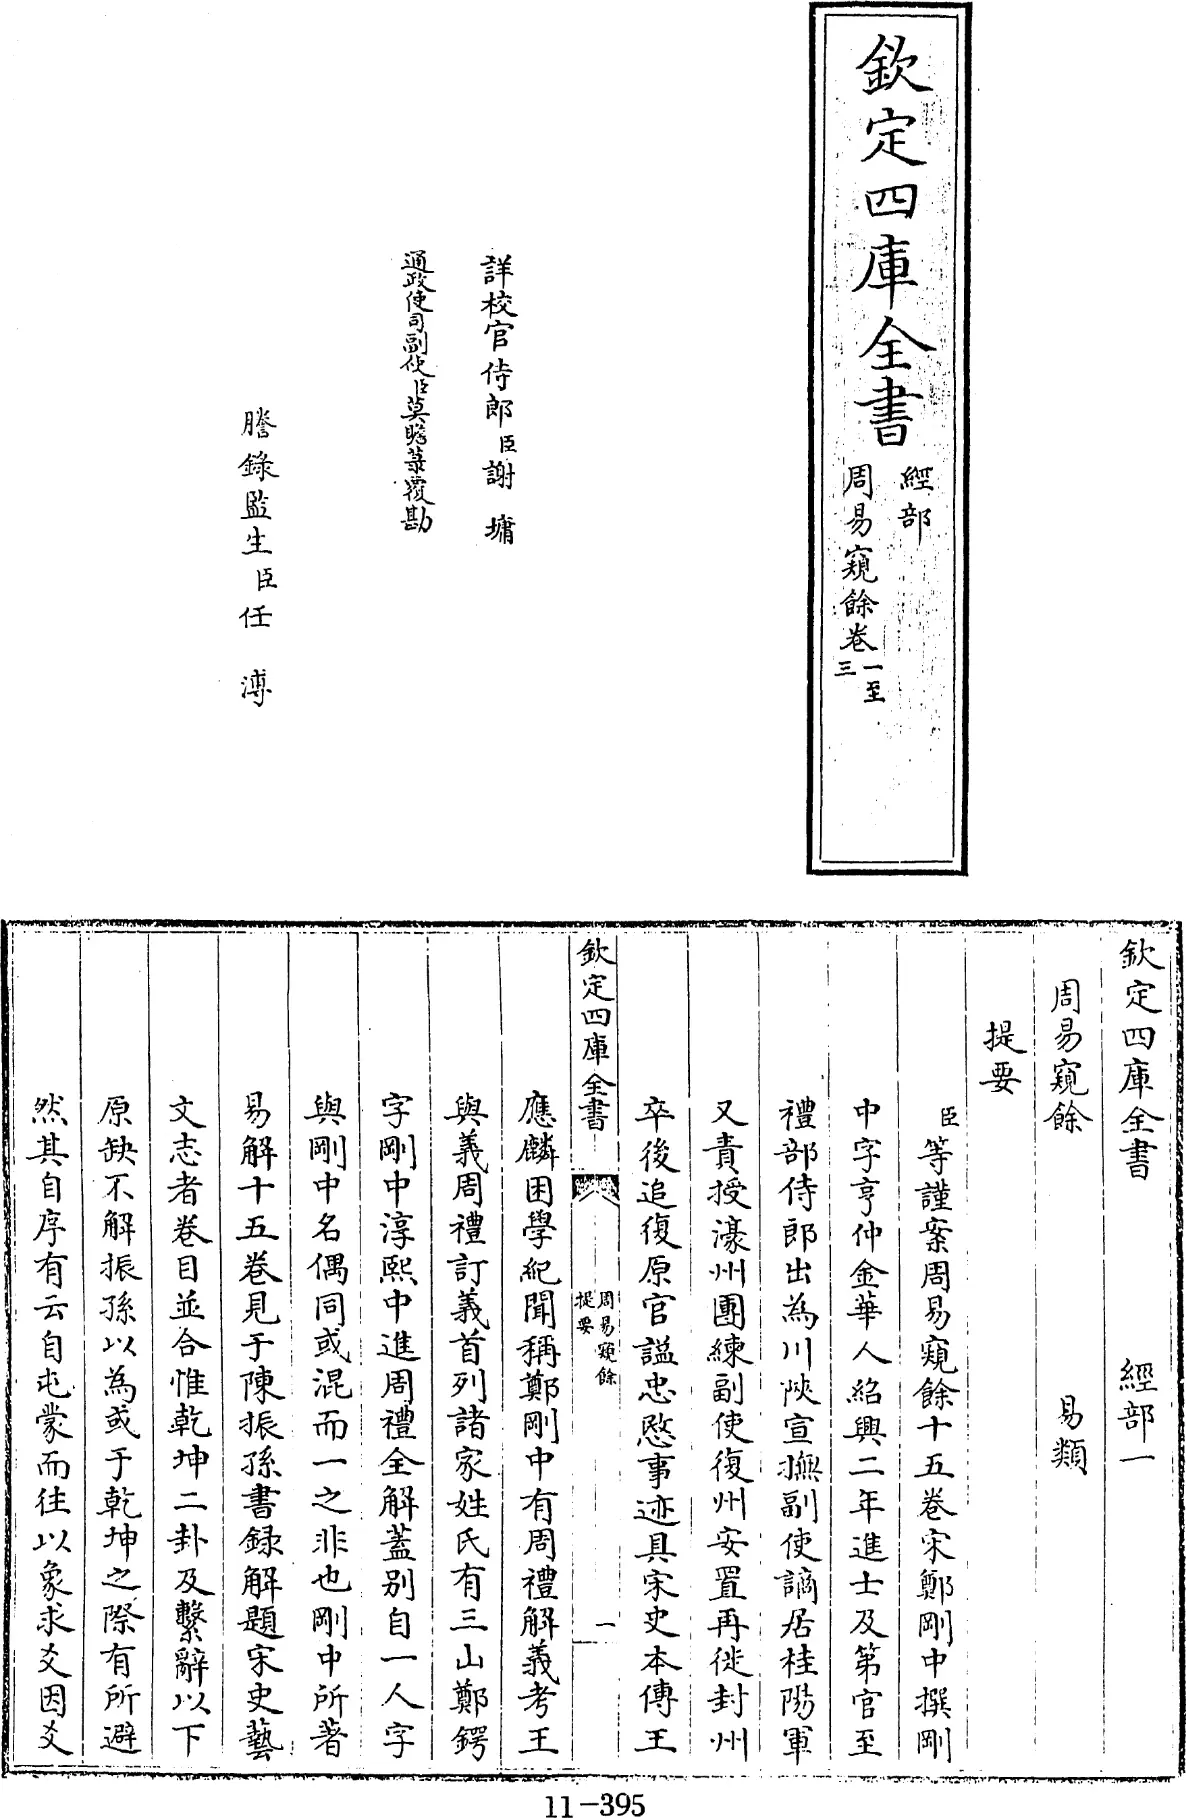 欽定四庫全書
經部
周易窺餘卷一至三
詳校官侍郎臣謝墉
通政使司副使臣莫瞻菉覆勘
謄錄監生臣任溥
欽定四庫全書 經部一
周易窺餘 易類
提要
臣等謹案周易窺餘十五卷宋鄭剛中撰剛
中字亨仲金華人紹興二年進士及第官至
禮部侍郎出為川陜宣撫副使謫居桂陽軍
又責授濠州團練副使復州安置再徙封州
卒後追復原官謚忠愍事迹具宋史本傳王
欽定四庫全書
周易窺餘
提要
一
應麟困學紀聞稱鄭剛中有周禮解義考王
與義周禮訂義首列諸家姓氏有三山鄭鍔
字剛中淳熙中進周禮全解蓋別自一人字
與剛中名偶同或混而一之非也剛中所著
易解十五卷見于陳振孫書録解題宋史藝
文志者卷目並合惟乾坤二卦及繫辭以下
原缺不解振孫以為或于乾坤之際有所避
然其自序有云自屯蒙而往以象求爻因爻
11-395